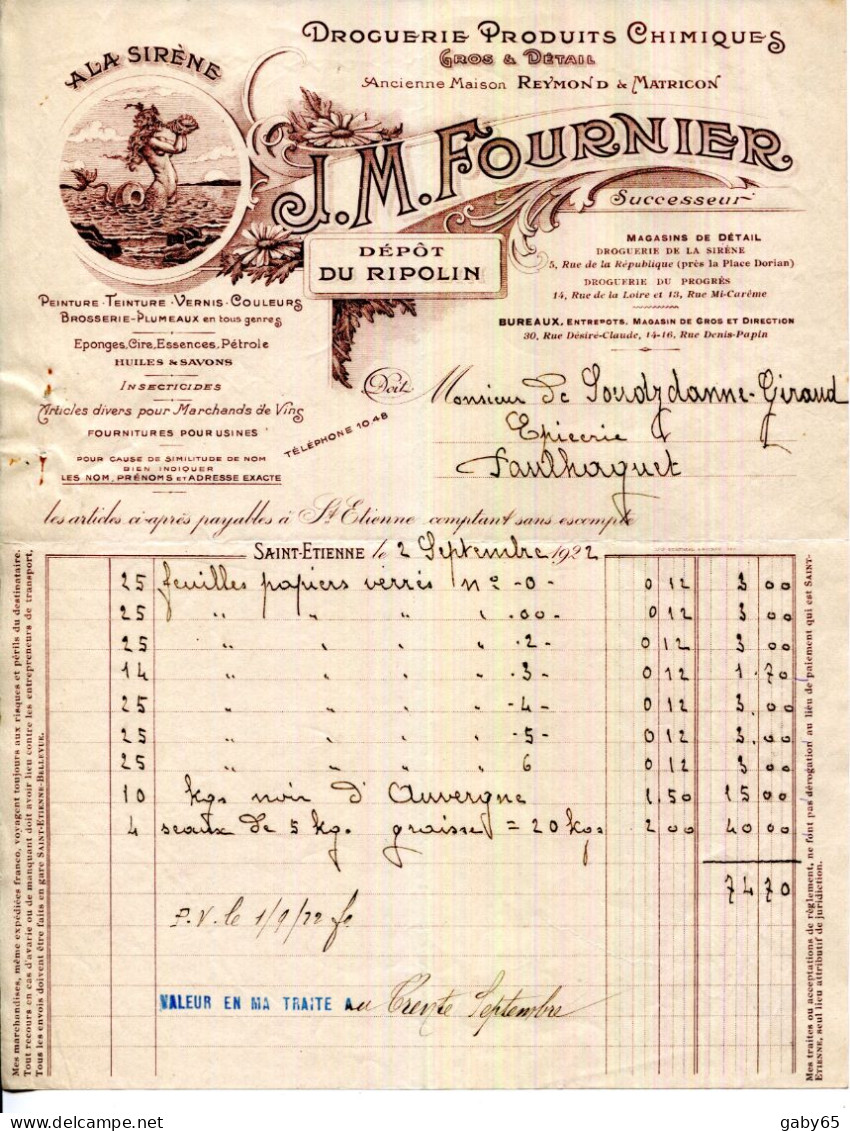 DROGUERIE PRODUITS CHIMIQUES
GROS & DÉTAIL
Ancienne Maison REYMOND & MATRICON
A LA SIRÈNE
J. M. FOURNIER
Successeur
DÉPÔT
DU RIPOLIN
MAGASINS DE DÉTAIL
DROGUERIE DE LA SIRÈNE
5, Rue de la République (près la Place Dorian)
DROGUERIE DU PROGRÈS
14, Rue de la Loire et 13, Rue Mi-Carême
BUREAUX, ENTREPOTS, MAGASIN DE GROS ET DIRECTION
30, Rue Désiré-Claude, 14-16, Rue Denis-Papin
PEINTURE - TEINTURE - VERNIS - COULEURS
BROSSERIE - PLUMEAUX en tous genres
Eponges, Cire, Essences, Pétrole
HUILES & SAVONS
INSECTICIDES
Articles divers pour Marchands de Vins
FOURNITURES POUR USINES
POUR CAUSE DE SIMILITUDE DE NOM
BIEN INDIQUER
LES NOM, PRÉNOMS ET ADRESSE EXACTE
TÉLÉPHONE 10.48
Doit
Monsieur De Giraud
Epicerie
Paulhaguet
les articles ci-après payables à St Etienne comptant sans escompte
SAINT-ETIENNE le 2 Septembre 1922
25 feuilles papiers verrés no -0- 0 12 3 00
25 " " " " .00. 0 12 3 00
25 " " " " .2- 0 12 3 00
14 " " " " .3- 0 12 1.70
25 " " " " -4- 0 12 3.00
25 " " " " -5- 0 12 3.00
25 " " " " 6 0 12 3 00
10 kgs noir d'Auvergne 1.50 15 00
4 seaux de 5 kg. graisse = 20 kgs 2 00 40 00
74 70
P.V. le 1/9/22
VALEUR EN MA TRAITE Au Trente Septembre
Mes marchandises, même expédiées franco, voyagent toujours aux risques et périls du destinataire.
Tout recours en cas d'avarie ou de manquant doit avoir lieu contre les entrepreneurs de transport.
Tous les envois doivent être faits en gare SAINT-ETIENNE-BELLEVUE.
Mes traites ou acceptations de règlement, ne font pas dérogation au lieu de paiement qui est SAINT-
ETIENNE, seul lieu attributif de juridiction.
gaby65